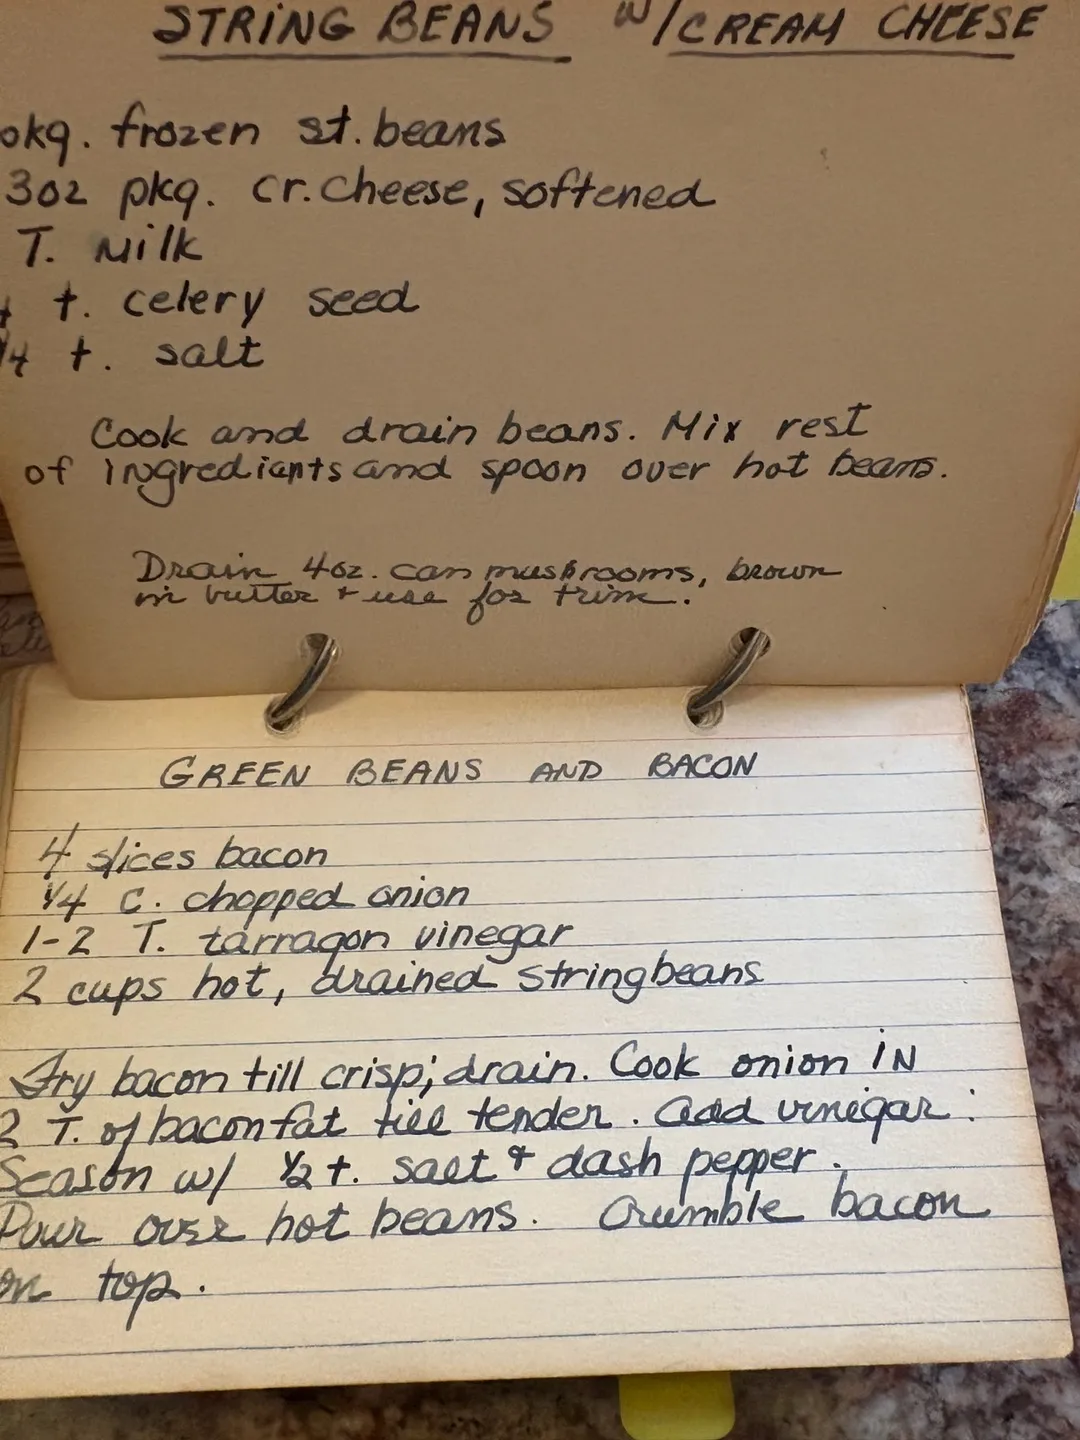 STRING BEANS W/CREAM CHEESE
pkg. frozen st. beans
3oz pkg. cr. cheese, softened
T. Milk
t. celery seed
1/4 t. salt
Cook and drain beans. Mix rest
of ingrediants and spoon over hot beans.
Drain 4oz. can mushrooms, brown
in butter + use for trim.
GREEN BEANS AND BACON
4 slices bacon
1/4 C. chopped onion
1-2 T. tarragon vinegar
2 cups hot, drained stringbeans
Fry bacon till crisp; drain. Cook onion in
2 T. of bacon fat till tender. Add vinegar.
Season w/ 1/2 t. salt & dash pepper.
Pour over hot beans. Crumble bacon
on top.